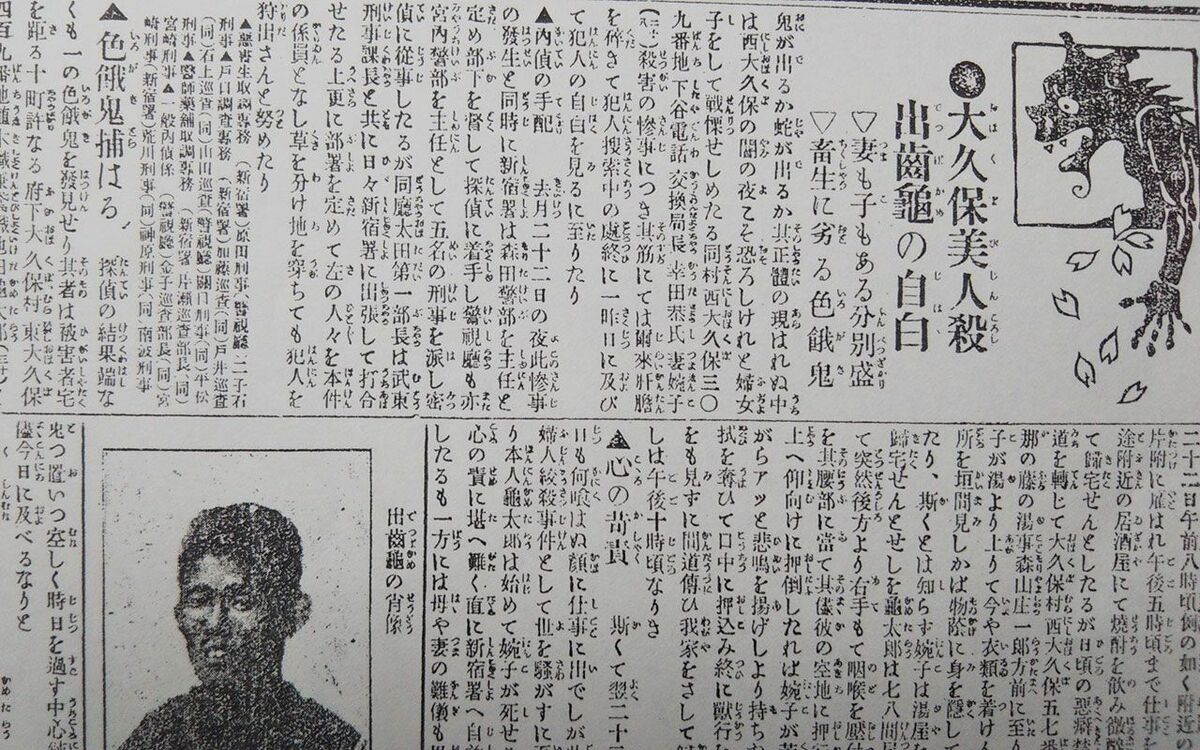 ●大久保美人殺
出齒龜の自白
▽妻も子もある分別盛
▽畜生に劣る色餓鬼
鬼が出るか蛇が出るか其正體の現はれぬ中
は西大久保の闇の夜こそ恐ろしけれと婦女
子をして戰慄せしめたる同村西大久保三〇
九番地下谷電話交換局長幸田恭氏妻婉子
殺害の慘事につき其筋にては爾來肝膽
を碎きて犯人搜索中の處終に一昨日に及び
て犯人の自白を見るに至りたり
▲内偵の手配 去月二十二日の夜此慘事
の發生と同時に新宿署は森田警部を主任と
定め部下を督して探偵に着手し警視廳も亦
宮内警部を主任として五名の刑事を派し密
偵に從事したるが同廳太田第一部長は武東
刑事課長と共に日々新宿署に出張して打合
せたる上更に部署を定めて左の人々を本件
の係員となし草を分け地を穿ちても犯人を
狩出さんと努めたり
▲惡書生取調專務(新宿署)原田刑事(警視廳)二子石
刑事▲戸口調査專務(新宿署)加藤巡査(同)戸井巡査
(同)石上巡査(同)山田巡査(警視廳)關口刑事(同)平松
刑事▲醫師藥舖取調專務(新宿署)片瀬巡査部長(同)
宮崎刑事▲一般内偵係(警視廳)金子巡査部長(同)宮
崎刑事(新宿署)荒川刑事(同)榊原刑事(同)南波刑事
▲色餓鬼捕はる 探偵の結果端な
くも一の色餓鬼を發見せり其者は被害者宅
を距る十町計なる府下大久保村東大久保
四百九番地植木職兼鳶職池田龜太郎
二十二日午前八時頃例の如く附近の
片附に雇はれ午後五時頃まで仕事を
途附近の居酒屋にて燒酎を飲み微醉
て歸宅せんとしたるが日頃の惡癖
道を轉じて大久保村西大久保五七
那の藤の湯事森山庄一郎方前に至
子が湯より上りて今や衣類を着け
所を垣間見しかば物蔭に身を隱して
たり、斯くとは知らず婉子は湯屋を
歸宅せんとせしを龜太郎は七八間尾
て突然後方より右手もて咽喉を壓付
を其腰部に當て其儘彼の空地に押
上へ仰向けに押倒したれば婉子が苦
がらアッと悲鳴を揚げしより持ち
拭を奪ひて口中に押込み終に獸行
をも見ずに間道傳ひ我家をさして
しは午後十時頃なりき
▲心の苛責 斯くて翌二十三
日も何喰はぬ顏に仕事に出でしが
婦人絞殺事件として世を騷がすに至
り本人龜太郎は始めて婉子が死せ
心の責に堪へ難く直に新宿署へ自首
したるも一方には母や妻の難儀も思
出齒龜の肖像
兎つ置いつ空しく時日を過す中心
儘今日に及べるなりと